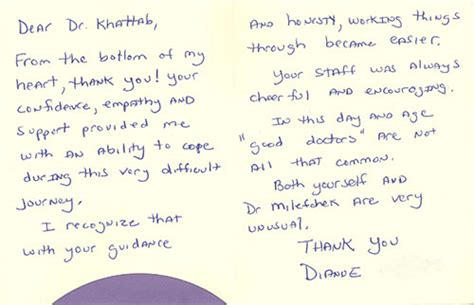 Dear Dr. Khattab,
From the bottom of my
heart, thank you! your
confidence, empathy AND
support provided me
with an ability to cope
during this very difficult
journey.
I recognize that
with your guidance
AND honesty, working things
through became easier.
Your staff was always
cheerful AND encouraging.
In this day AND Age
"good doctors" are not
All that common.
Both yourself AND
Dr Milefchek are very
unusual.
THANK YOU
DIANNE